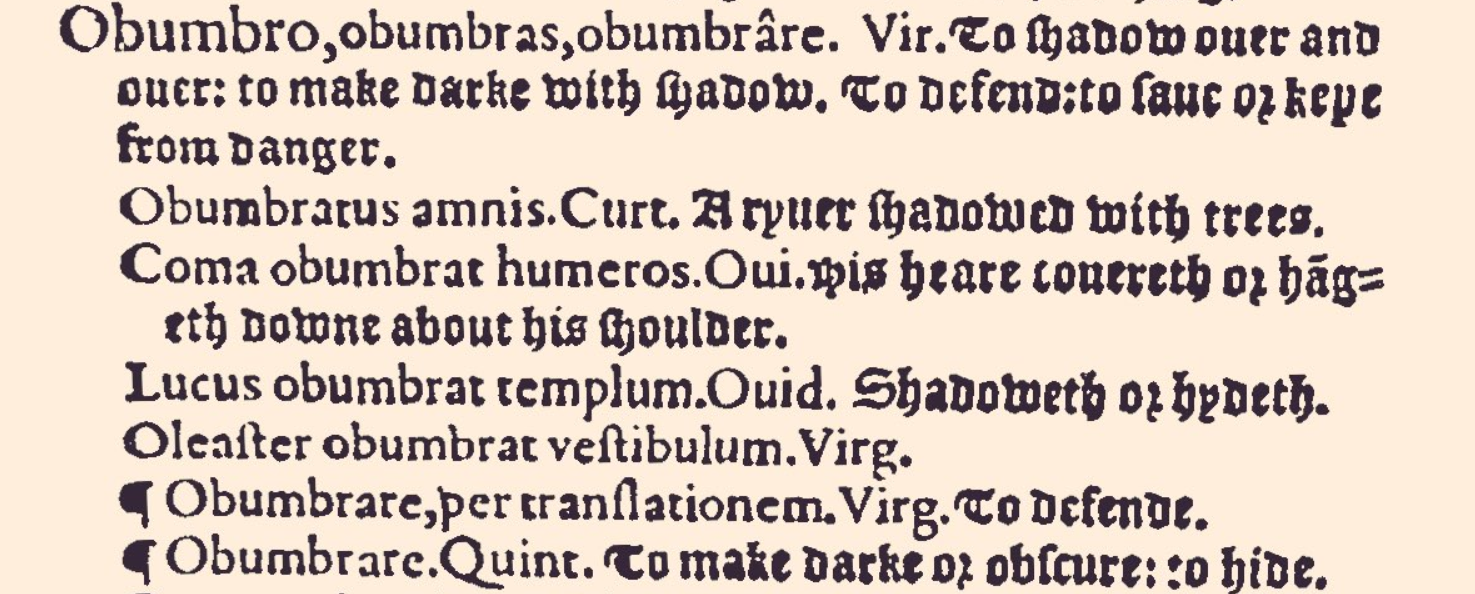 Obumbro,obumbras,obumbrâre. Vir.To ſhadow ouer and
ouer: to make darke with ſhadow. To defend:to ſaue oꝛ kepe
from danger.
Obumbratus amnis.Curt. A ryuer ſhadowed with trees.
Coma obumbrat humeros.Oui.His heare couereth oꝛ hãg=
eth downe about his ſhoulder.
Lucus obumbrat templum.Ouid. Shadoweth oꝛ hydeth.
Oleaſter obumbrat veſtibulum.Virg.
¶ Obumbrare,per tranſlationem.Virg.To defende.
¶ Obumbrare.Quint. To make darke oꝛ obſcure: to hide.